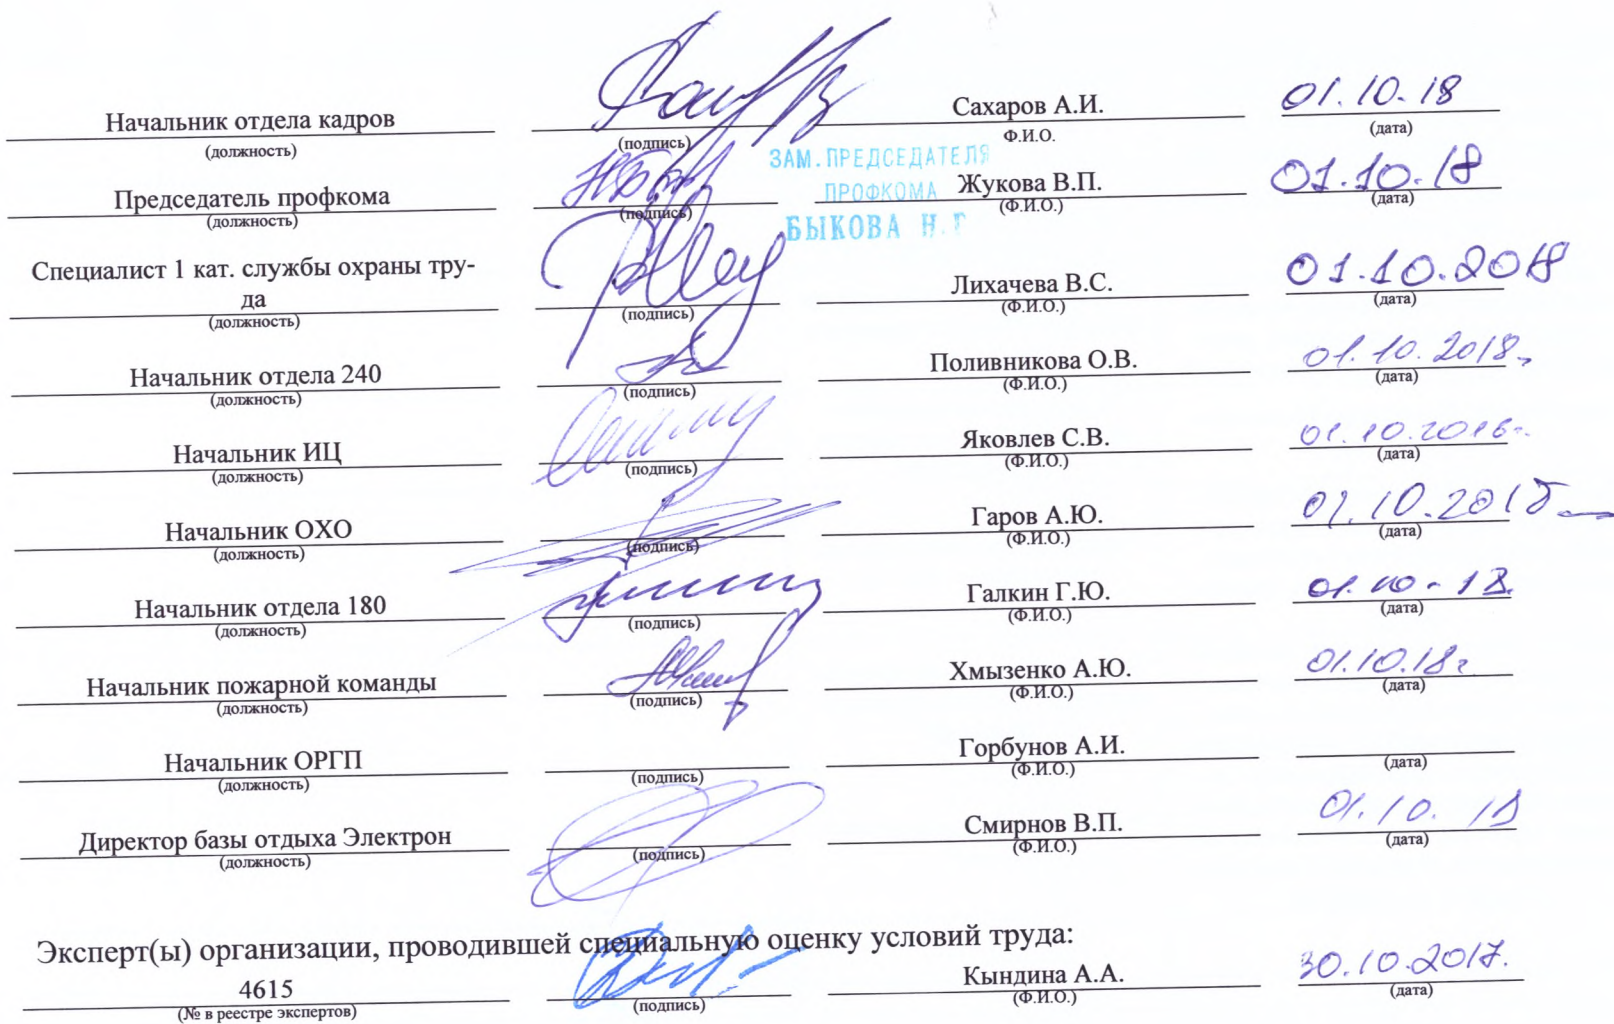 Начальник отдела кадров Сахаров А.И. 01.10.18
(должность) (подпись) Ф.И.О. (дата)
ЗАМ. ПРЕДСЕДАТЕЛЯ
Председатель профкома ПРОФКОМА Жукова В.П. 01.10.18
(должность) (подпись) (Ф.И.О.) (дата)
БЫКОВА Н.Г
Специалист 1 кат. службы охраны тру-
да Лихачева В.С. 01.10.2018
(должность) (подпись) (Ф.И.О.) (дата)
Начальник отдела 240 Поливникова О.В. 01.10.2018г
(должность) (подпись) (Ф.И.О.) (дата)
Начальник ИЦ Яковлев С.В.
(должность) (подпись) (Ф.И.О.) (дата)
Начальник ОХО Гаров А.Ю.
(должность) (подпись) (Ф.И.О.) (дата)
Начальник отдела 180 Галкин Г.Ю. 01.10-18
(должность) (подпись) (Ф.И.О.) (дата)
Начальник пожарной команды Хмызенко А.Ю. 01.10.18г
(должность) (подпись) (Ф.И.О.) (дата)
Начальник ОРГП Горбунов А.И.
(должность) (подпись) (Ф.И.О.) (дата)
Директор базы отдыха Электрон Смирнов В.П. 01.10.18
(должность) (подпись) (Ф.И.О.) (дата)
Эксперт(ы) организации, проводившей специальную оценку условий труда:
4615 Кындина А.А. 30.10.2017.
(№ в реестре экспертов) (подпись) (Ф.И.О.) (дата)